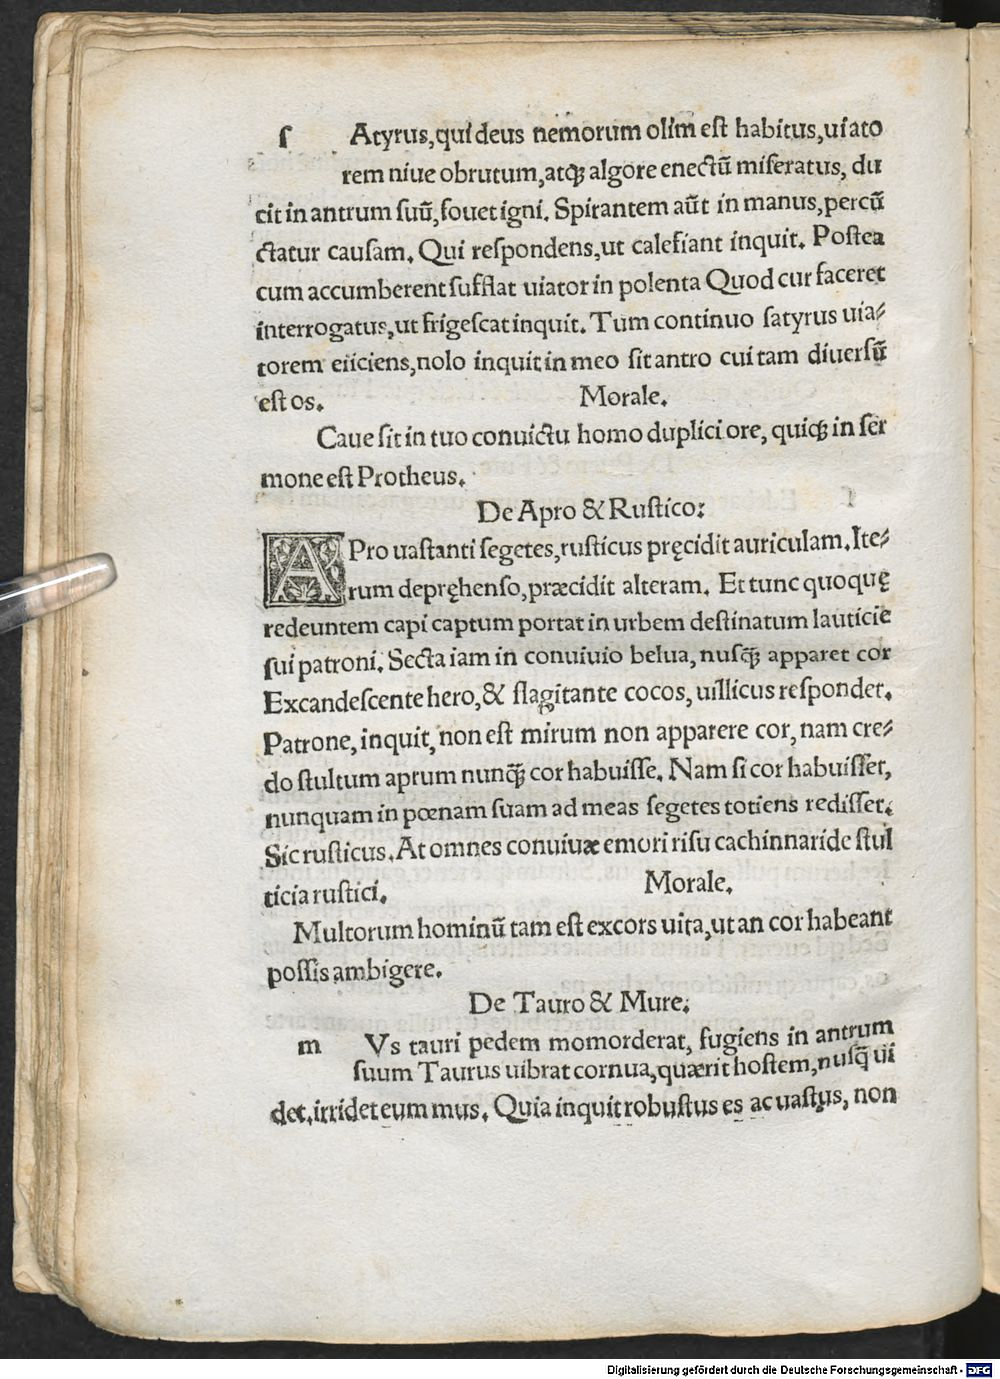 ſ Atyrus,qui deus nemorum olim eſt habitus,uiato
rem niue obrutum,atqꝫ algore enectū miſeratus, du
cit in antrum ſuū,fouet igni. Spirantem aūt in manus,percū
ctatur cauſam. Qui reſpondens,ut calefiant inquit. Poſtea
cum accumberent ſufflat uiator in polenta Quod cur faceret
interrogatus,ut frigeſcat inquit. Tum continuo ſatyrus uia⸗
torem eiiciens,nolo inquit in meo ſit antro cui tam diuerſū
eſt os. Morale.
Caue ſit in tuo conuictu homo duplici ore, quiqꝫ in ſer
mone eſt Protheus.
De Apro & Ruſtico:
APro uaſtanti ſegetes,ruſticus pręcidit auriculam.Ite⸗
rum depręhenſo,præcidit alteram. Et tunc quoquę
redeuntem capi captum portat in urbem deſtinatum lauticie
ſui patroni. Secta iam in conuiuio belua, nuſqꝫ̄ apparet cor
Excandeſcente hero,& flagitante cocos, uillicus reſpondet.
Patrone, inquit, non eſt mirum non apparere cor, nam cre⸗
do ſtultum aprum nunqꝫ̄ cor habuiſſe. Nam ſi cor habuiſſet,
nunquam in pœnam ſuam ad meas ſegetes totiens rediſſet.
Sic ruſticus. At omnes conuiuæ emori riſu cachinnari de ſtul
ticia ruſtici. Morale.
Multorum hominū tam eſt excors uita,ut an cor habeant
poſſis ambigere.
De Tauro & Mure.
m Vs tauri pedem momorderat, fugiens in antrum
ſuum Taurus uibrat cornua,quærit hoſtem,nuſq̄ ui
det.irridet eum mus. Quia inquit robuſtus es ac uaſtus, non
Digitalisierung gefördert durch die Deutsche Forschungsgemeinschaft - DFG